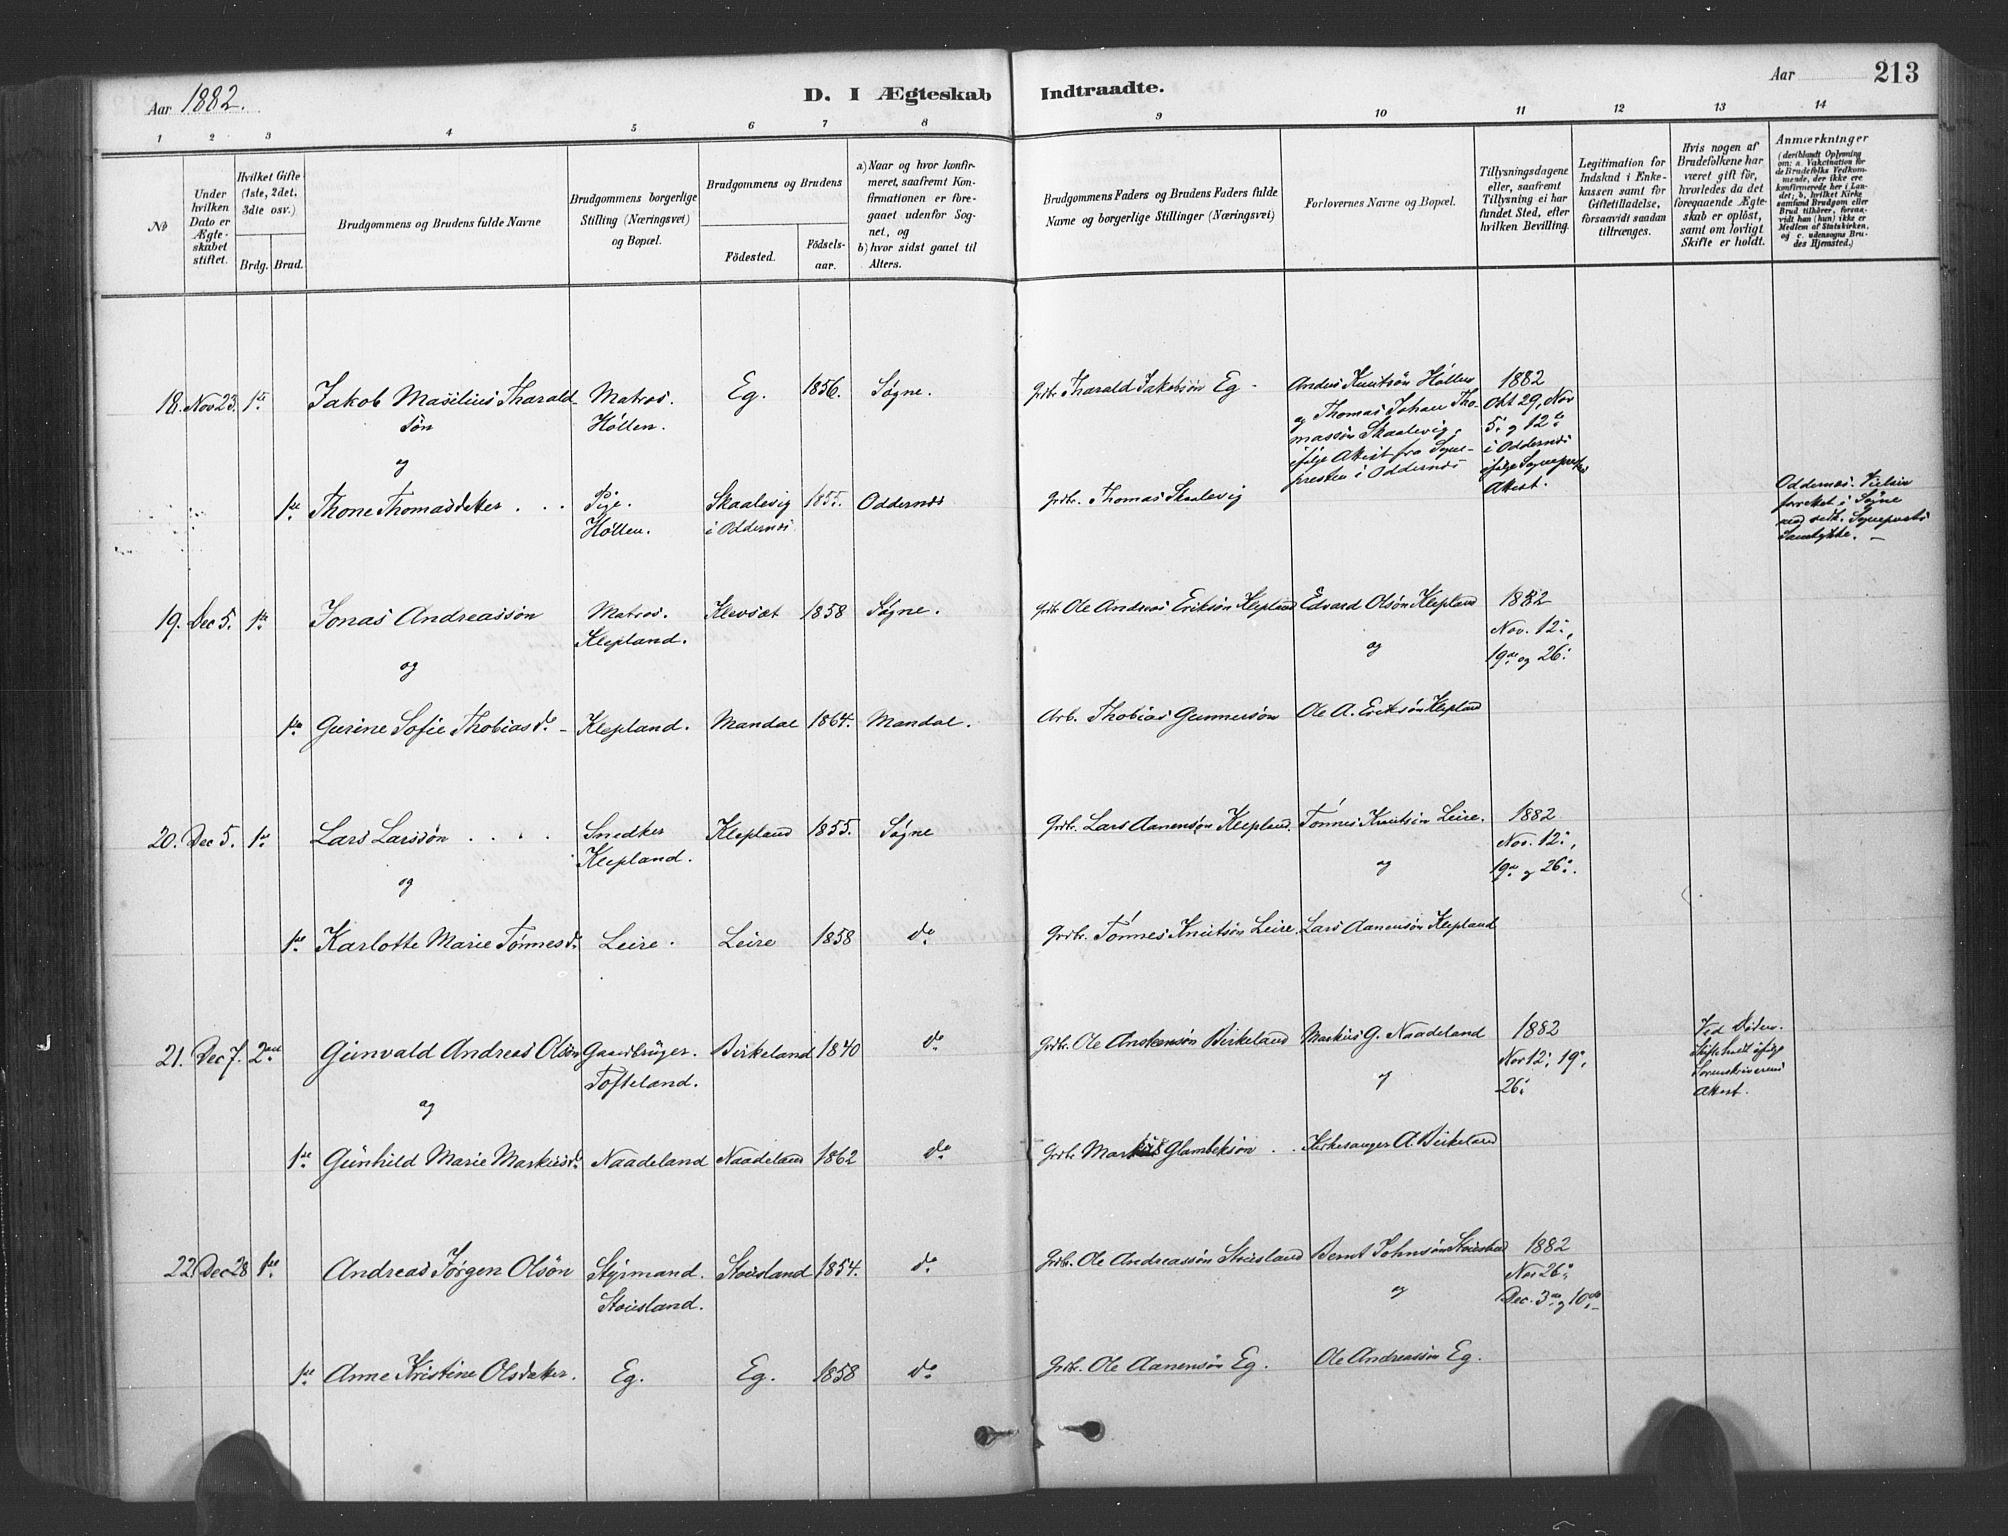 Aar 1882.
D. I Ægteskab
Indtraadte.
Aar
213
1 2 3 4 5 6 7 8 9 10 11 12 13 14
№
Under hvilken Dato er Ægteskabet stiftet.
Hvilket Gifte (1ste, 2det, 3die osv.)
Brdg. Brud.
Brudgommens og Brudens fulde Navne
Brudgommens borgerlige Stilling (Næringsvei) og Bopæl.
Brudgommens og Brudens
Födested.
Födselsaar.
a) Naar og hvor konfirmeret, saafremt Konfirmationen er foregaaet udenfor Sognet, og
b) hvor sidst gaaet til Alters.
Brudgommens Faders og Brudens Faders fulde Navne og borgerlige Stillinger (Næringsvei)
Forlovernes Navne og Bopæl.
Tillysningsdagene eller, saafremt Tillysning ei har fundet Sted, efter hvilken Bevilling.
Legitimation for Indskud i Enkekassen samt for Giftetilladelse, forsaavidt saadan tiltrænges.
Hvis nogen af Brudefolkene har været gift för, hvorledes da det foregaaende Ægteskab er oplöst, samt om lovligt Skifte er holdt.
Anmærkninger
(deriblandt Oplysning om: a. Vakcination for de Brudefolks Vedkommende, der ikke ere konfirmerede her i Landet; b. hvilket Kirkesamfund Brudgom eller Brud tilhörer, forsaavidt han (hun) ikke er Medlem af Statskirken, og c. udensogns Brudes Hjemsted.)
18. Nov 23. 1ste Jakob Masilius Tharaldsön Matros. Höllen. Eg. 1856. Søgne. Grdbr. Tharald Jakobsön Eg. Anders Knutsön Höllen og Thomas Johan Thomassön Skaalevig, ifølge Attest fra Sognepresten i Oddernæs 1882 Okt 29, Nov 5. og 12te i Oddernæs ifølge Sogneprestens Attest.
og
1ste Thone Thomasdatter . . . Pige. Höllen. Skaalevig i Oddernæs 1855. Oddernæs Grdbr. Thomas Skaalevig Oddernæs. Vielsen forrettet i Søgne med vedk. Sogneprests Samtykke. —
19. Dec 5. 1ste Jonas Andreassön Matros. Klepland. Klevsæt 1858 Søgne. Grdbr. Ole Andreas Eriksön Klepland Edvard Olsön Klepland 1882 Nov. 12., 19de og 26.
og og
1ste Gurine Sofie Thobiasd. – Klepland. Mandal 1864. Mandal. Arb. Thobias Gunnersön Ole A. Eriksön Klepland
20. Dec 5. 1ste Lars Larssön . . . . Snedker Klepland. Klepland 1855. Søgne Grdbr. Lars Aanensön Klepland. Tönnes Knutsön Leire. 1882 Nov. 12., 19de og 26.
og og
1ste Karlotte Marie Tönnesd. Leire. Leire 1858 do Grdbr. Tönnes Knutsön Leire. Lars Aanensön Klepland
21. Dec 7. 2det Gunvald Andreas Olsön Gaardbruger. Tofteland. Birkeland 1840 do Grdbr. Ole Anstensön Birkeland Markus G. Naadeland 1882 Nov 12, 19, 26. Ved Döden. Skifte holdt ifølge Sorenskriverens Attest.
og og
1ste Gunhild Marie Markusd. Naadeland Naadeland 1862 do Grdbr. Markus Glambeksön . . Kirkesanger A. Birkeland
22. Dec 28 1ste Andreas Jörgen Olsön Styrmand. Stousland. Stousland 1854. do Grdbr. Ole Andreassön Stousland Bernt Johnsön Stousland 1882 Nov 26., Dec. 3de og 10de
og
1ste Anne Kristine Olsdatter. Eg. Eg. 1858 do Grdbr. Ole Aanensön Eg. Ole Andreassön Eg.